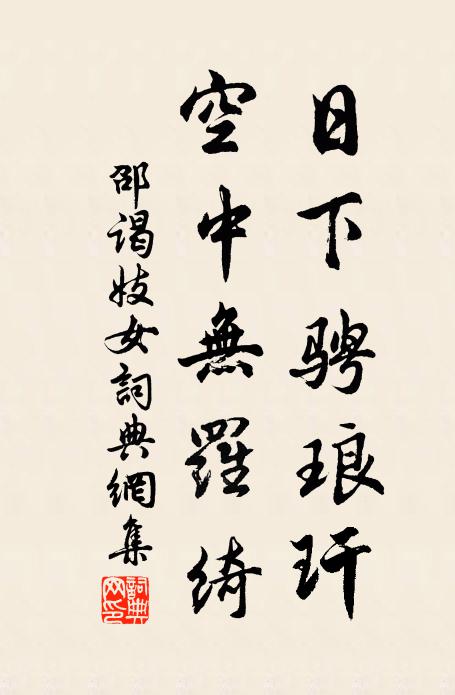 日下騁琅玕
空中無羅綺
邵謁妓女詞典網集
詞典網印